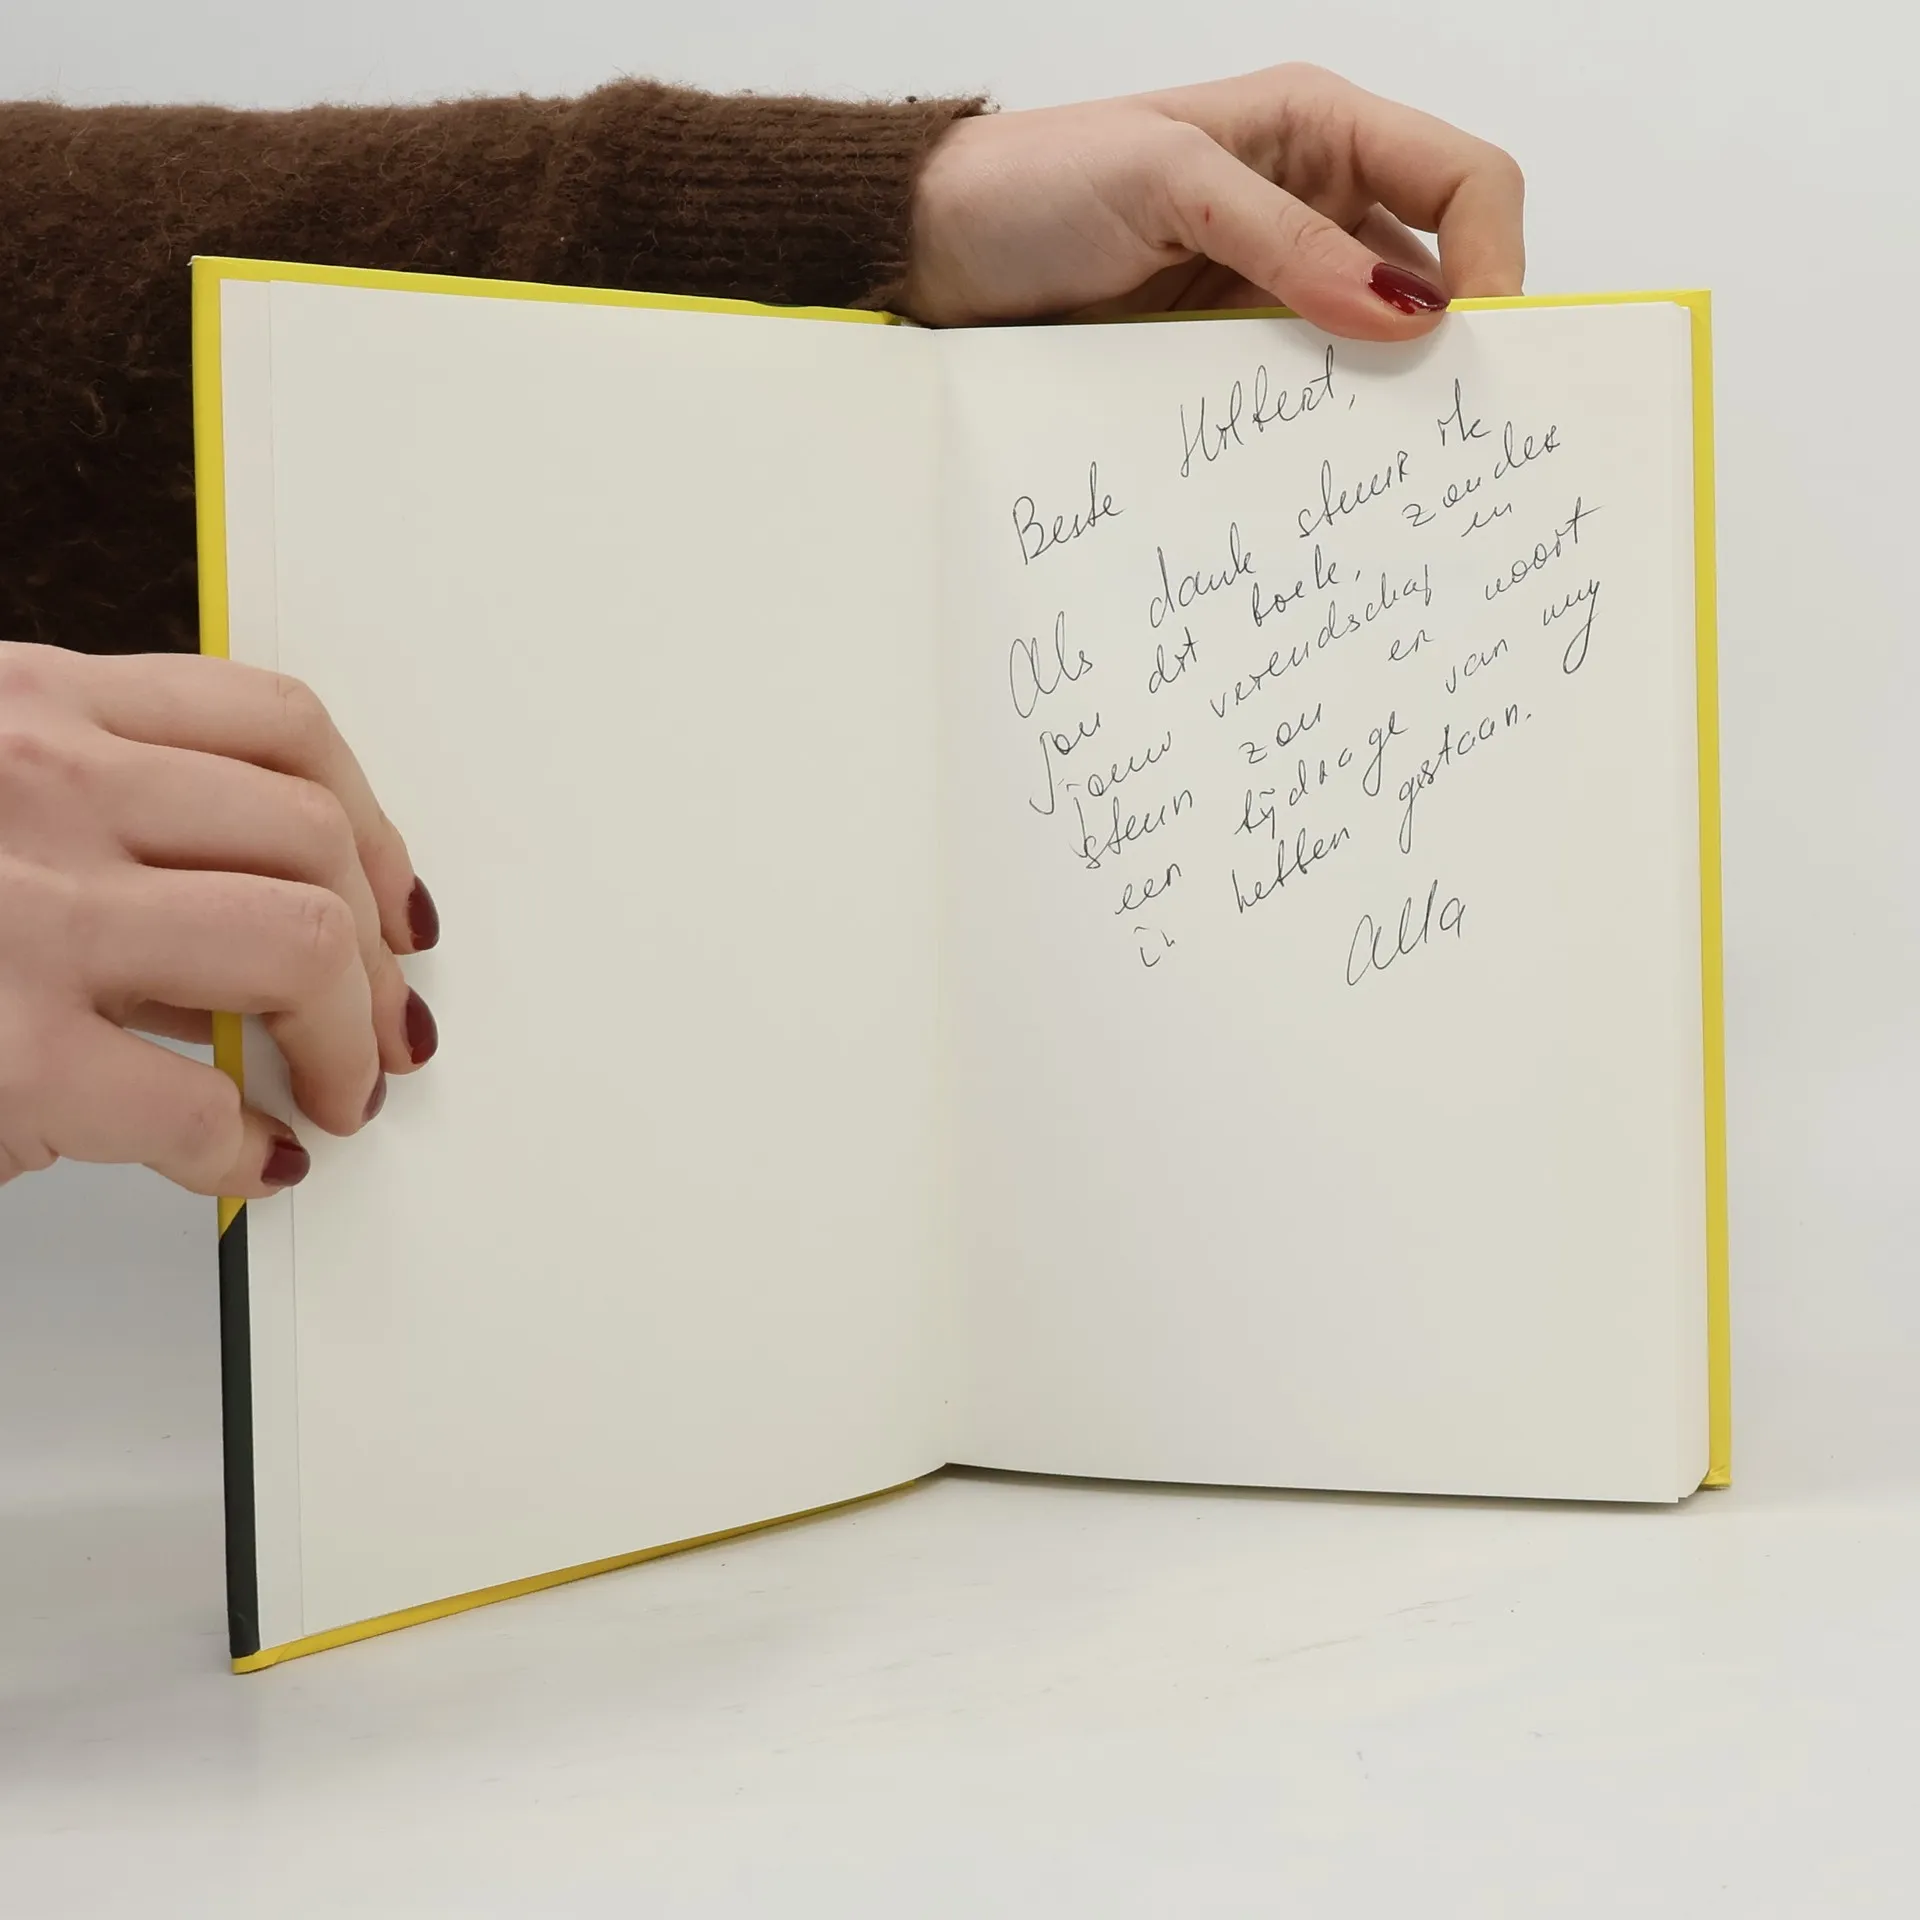 Beste Hilbert,
Als dank stuur ik
jou dit boek, zonder
jouw vreundschap en
steun zou er noort
een bijdrage van mij
in hebben gestaan.
Alla